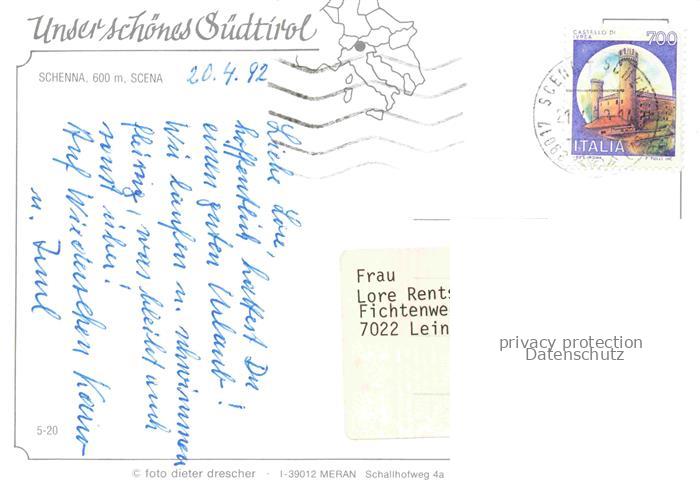 Unser schönes Südtirol
SCHENNA, 600 m, SCENA
20.4.92
Liebe Lore,
hoffentlich hattest Du
einen guten Urlaub!
Wir laufen u. schwimmen
fleißig, was bleibt auch
sonst über!
Auf Wiedersehen
u.
CASTELLO DI
IVREA
700
ITALIA
39017 SCENA
Frau
Lore Rents
Fichtenwe
7022 Lein
privacy protection
Datenschutz
5-20
© foto dieter drescher · I-39012 MERAN Schallhofweg 4a